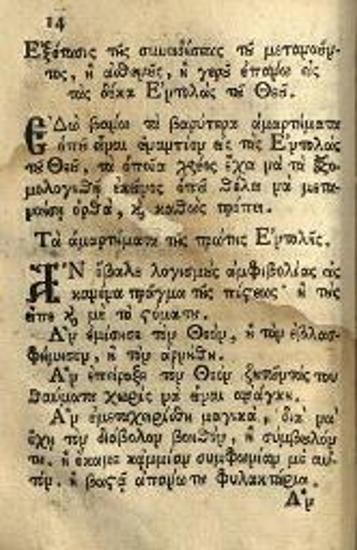 14
Εξέτασις τῆς συνειδήσεως τοῦ μετανοοῦν-
τος, ἢ ἀσθενοῦς, ἢ γερο ἐπάνω εἰς
τὰς δέκα Ἐντολὰς τοῦ Θεοῦ.
ΕΔῶ βάνω τὰ βαρύτερα ἁμαρτήματα
ὁποῦ εἶναι ἐναντίον εἰς τὰς Ἐντολὰς
τοῦ Θεοῦ, τὰ ὁποῖα χρέος ἔχει νὰ τὰ ἐξο-
μολογηθῇ ἐκεῖνος ὁποῦ θέλει νὰ μετα-
νοήσῃ ὀρθὰ, καὶ καθὼς πρέπει.
Τὰ ἁμαρτήματα τῆς πρώτης Ἐντολῆς.
ΑΝ ἔβαλε λογισμοὺς ἀμφιβολίας εἰς
κανένα πρᾶγμα τῆς πίστεως· ἢ τὸ
εἶπε καὶ μὲ τὸ στόμα του.
Ἂν ἐμίσησε τὸν Θεὸν, ἢ τὸν ἐβλασ-
φήμησεν, ἢ τὸν ἀρνήθη.
Ἂν ἐπείραξε τὸν Θεὸν ζητῶντάς του
θαύματα χωρὶς νὰ εἶναι ἀνάγκη.
Ἂν ἐμεταχειρίσθη μαγικὰ, διὰ νὰ
ἔχῃ τὸν διάβολον βοηθὸν, ἢ σύμβουλόν
του. ἢ ἔκαμε καμμίαν συμφωνίαν μὲ αὐ-
τόν. ἢ βαστᾷ ἀπάνω του φυλακτήρια.
Ἂν